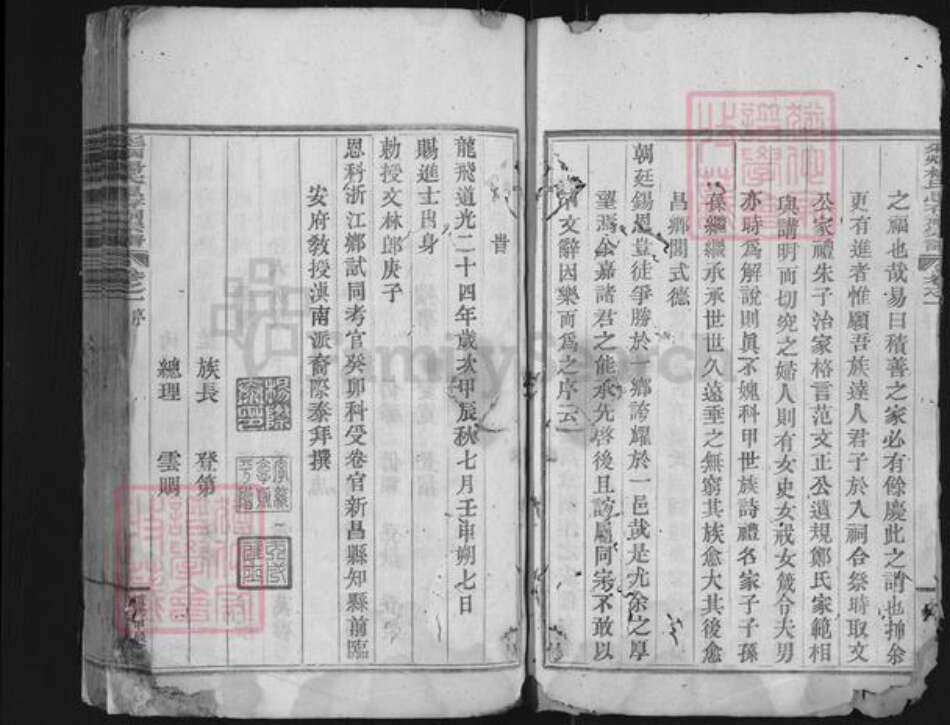 之福也哉易曰積善之家必有餘慶此之謂也抑余
更有進者惟願吾族達人君子於入祠合祭時取文
公家禮朱子治家格言范文正公遺規鄭氏家範相
與講明而切究之婦人則有女史女戒女箴令大男
亦時為解說則真不媿科甲世族詩禮名家子子孫
孫繼繼承承世世久遠垂之無窮其族愈大其後愈
昌鄉閭式德
朝廷錫恩豈徒爭勝於一鄉誇耀於一邑哉是尤余之厚
望焉余嘉諸君之能承先啓後且誼屬同宗不敢以
文辭因樂而為之序云
旹
龍飛道光二十四年歲次甲辰秋七月壬申朔七日
賜進士出身
勅授文林郎庚子
恩科浙江鄉試同考官癸卯科受卷官新昌縣知縣前臨
安府敎授滇南派裔際泰拜撰
族長 登第
總理 雲賜
FamilySearch